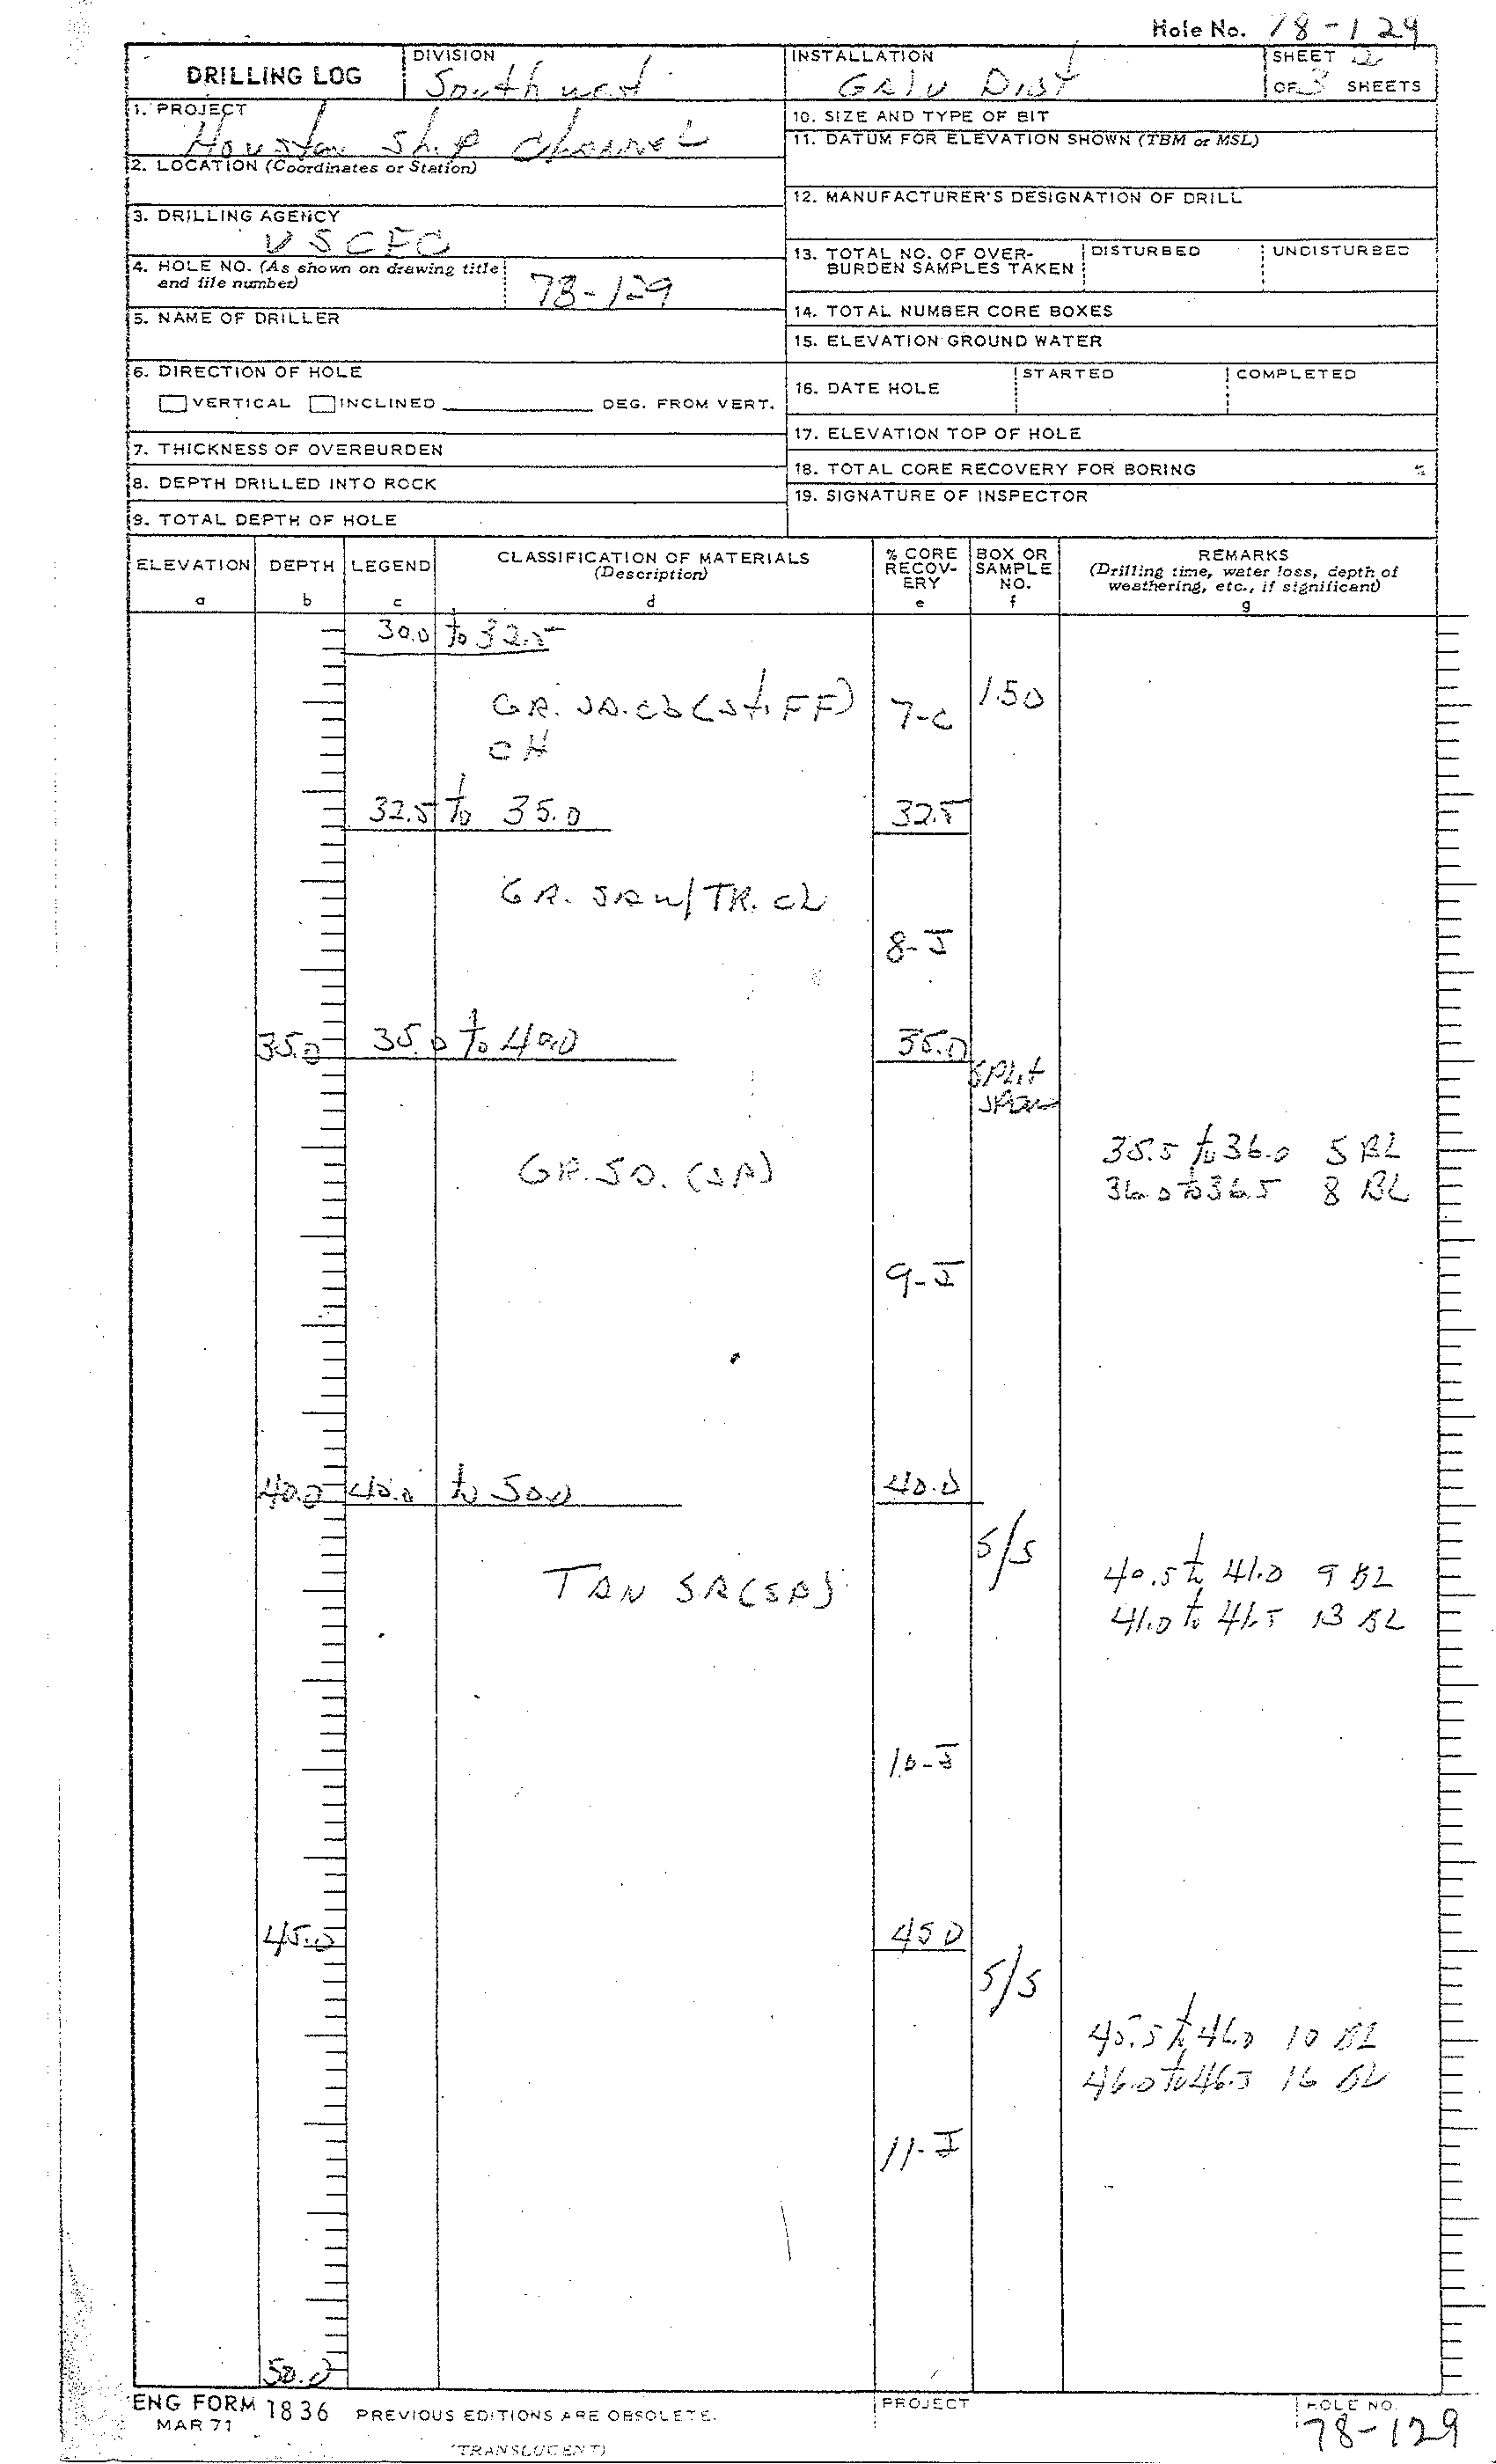 Hole No. 78-129
DRILLING LOG
DIVISION
Southwest
INSTALLATION
GALV DIST
SHEET 2
OF 3 SHEETS
1. PROJECT
Houston Ship Channel
2. LOCATION (Coordinates or Station)
3. DRILLING AGENCY
USCEC
4. HOLE NO. (As shown on drawing title
and file number)
78-129
5. NAME OF DRILLER
6. DIRECTION OF HOLE
VERTICAL INCLINED DEG. FROM VERT.
7. THICKNESS OF OVERBURDEN
8. DEPTH DRILLED INTO ROCK
9. TOTAL DEPTH OF HOLE
10. SIZE AND TYPE OF BIT
11. DATUM FOR ELEVATION SHOWN (TBM or MSL)
12. MANUFACTURER'S DESIGNATION OF DRILL
13. TOTAL NO. OF OVER-
BURDEN SAMPLES TAKEN
DISTURBED
UNDISTURBED
14. TOTAL NUMBER CORE BOXES
15. ELEVATION GROUND WATER
16. DATE HOLE
STARTED
COMPLETED
17. ELEVATION TOP OF HOLE
18. TOTAL CORE RECOVERY FOR BORING %
19. SIGNATURE OF INSPECTOR
ELEVATION
a
DEPTH
b
LEGEND
c
CLASSIFICATION OF MATERIALS
(Description)
d
% CORE
RECOV-
ERY
e
BOX OR
SAMPLE
NO.
f
REMARKS
(Drilling time, water loss, depth of
weathering, etc., if significant)
g
30.0 to 32.5
GR. SA. CL (STIFF)
CH
7-C
1.50
32.5 to 35.0
32.5
GR. SA W/ TR. CL
8-J
35.0
35.0 to 40.0
35.0
SPLIT
SPOON
GR. SA. (SP)
35.5 to 36.0 5 BL
36.0 to 36.5 8 BL
9-J
40.0
40.0 to 50.0
40.0
S/S
TAN SA (SP)
40.5 to 41.0 9 BL
41.0 to 41.5 13 BL
10-J
45.0
45.0
S/S
45.5 to 46.0 10 BL
46.0 to 46.5 16 BL
11-J
50.0
ENG FORM 1836
MAR 71
PREVIOUS EDITIONS ARE OBSOLETE.
(TRANSLUCENT)
PROJECT
HOLE NO.
78-129